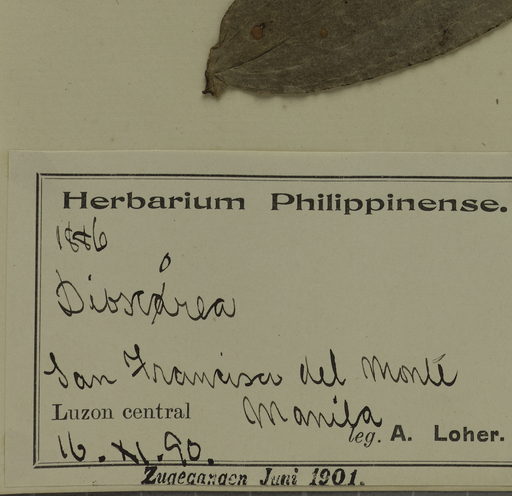 Herbarium Philippinense.
1886
Dioscorea
San Francisco del Monte
Luzon central Manila
leg. A. Loher.
16. XI. 90.
Zugegangen Juni 1901.